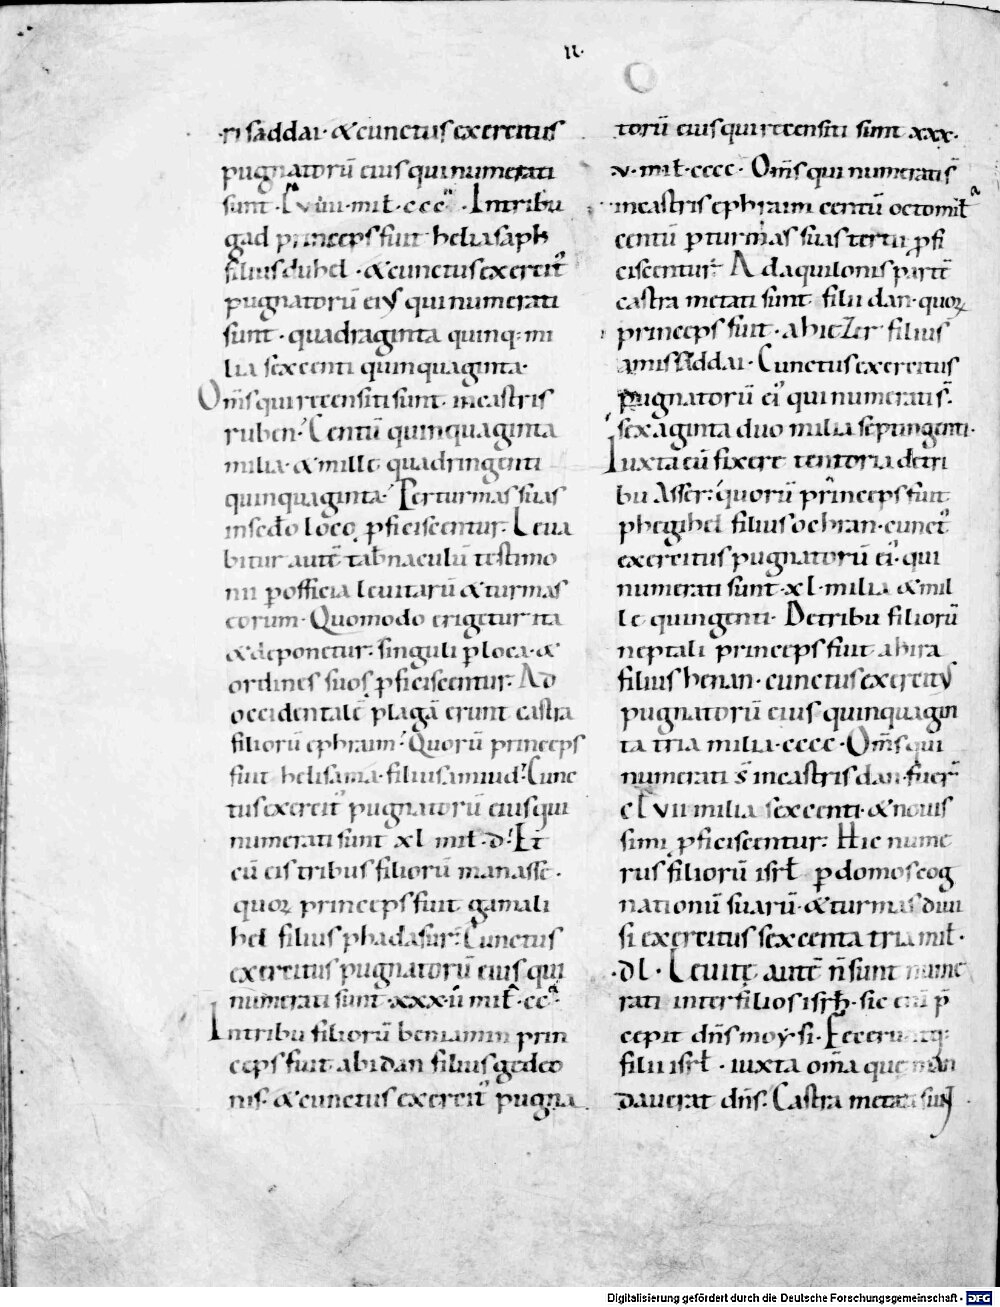 II·
ri saddai· & cunctus exercitus
pugnatorū eius qui numerati
sunt· Lviiii· mił· ccc· In tribu
gad princeps fuit heliasaph
filius duhel· & cunctus exercit᷒
pugnatorū ei᷒ qui numerati
sunt· quadraginta quinq; mi
lia sexcenti quinquaginta·
Om̅s qui recensiti sunt· in castris
ruben· Centū quinquaginta
milia· & mille quadringenti
quinquaginta· Per turmas suas
in sedo loco ꝓficiscentur· Leua
bitur autē tab̅naculū testimo
nii ꝑ officia leuitarū & turmas
eorum· Quomodo erigetur ita
& deponetur· singuli ꝑ loca· &
ordines suos ꝓficiscentur· Ad
occidentalē plagā erunt castra
filiorū ephraim· Quorū princeps
fuit helisama· filius amiud· Cunc
tus exercit᷒ pugnatorū eius qui
numerati sunt xl mił· d· Et
cū eis tribus filiorū manasse·
quoꝝ princeps fuit gamali
hel filius phadasur· Cunctus
exercitus pugnatorū eius qui
numerati sunt· xxx·ii mił· cc·
In tribu filiorū beniamin prin
ceps fuit abidan filius gedeo
nis· & cunctus exercit᷒ pugna
torū eius qui recensiti sunt xxx·
v· mił· cccc· Om̅s qui numerati s̅
in castris ephraim centū octo mił
centū ꝑ turmas suas tertii ꝓfi
ciscentur· Ad aquilonis partē
castra metati sunt filii dan· quoꝝ
princeps fuit· abiezer filius
amisaddai· Cunctus exercitus
pugnatorū ei᷒ qui numerati s̅·
sexaginta duo milia septingenti·
Iuxta eū fixere tentoria de tri
bu Asser· quorū princeps fuit
phegihel filius ochran· cunct᷒
exercitus pugnatorū ei᷒· qui
numerati sunt· xl· milia & mil
le quingenti· De tribu filiorū
neptali princeps fuit ahira
filius henan· cunctus exercit᷒
pugnatorū eius quinquagin
ta tria milia· cccc· Om̅s qui
numerati s̅ in castris dan· fuer̅
clvii milia sexcenti· & nouis
simi ꝓficiscentur· Hic nume
rus filiorū isrł ꝑ domos cog
nationū suarū· & turmas diui
si exercitus sexcenta tria mił·
·dl· Leuitę autē n̅ sunt nume
rati inter filios isrł· sic enī p̅
cepit dn̅s moysi· Feceruntq;
filii isrł· iuxta om̅a quę man
dauerat dn̅s· Castra metati sunt
Digitalisierung gefördert durch die Deutsche Forschungsgemeinschaft - DFG